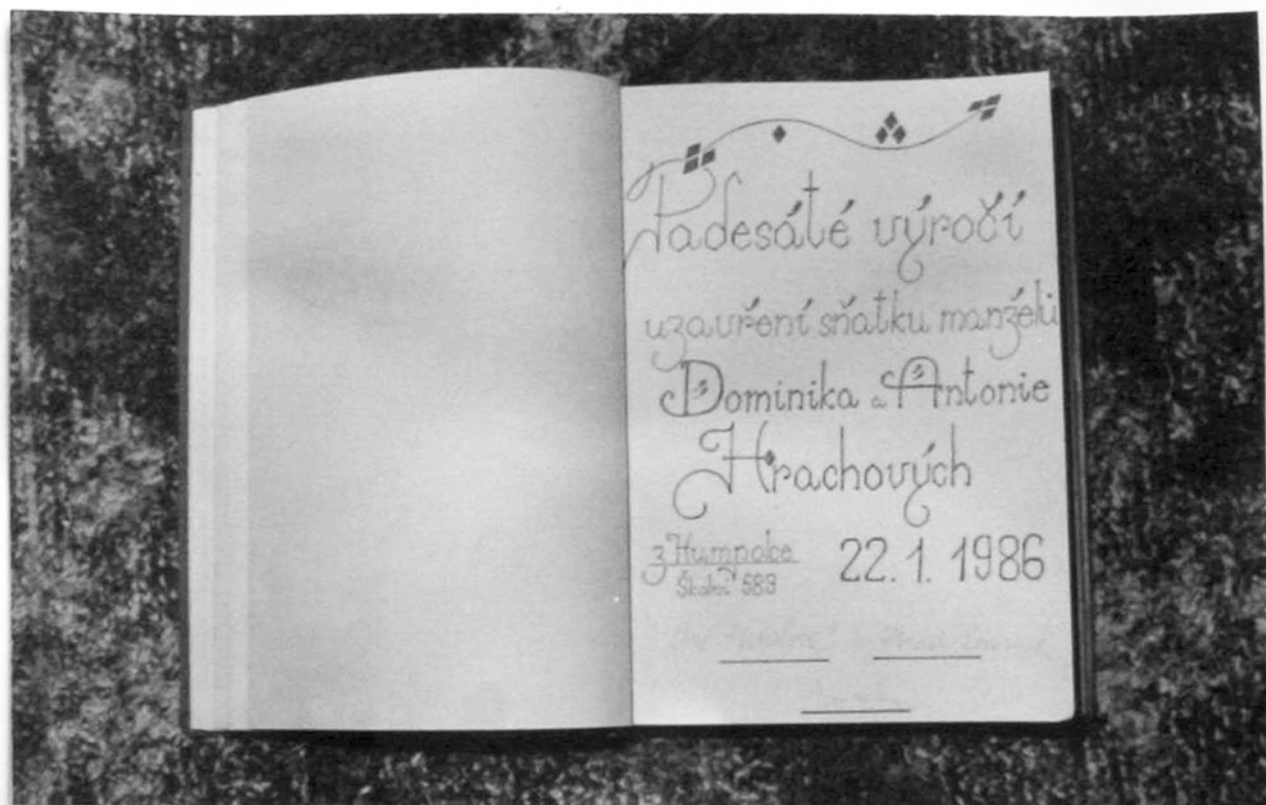 Padesáté výročí
uzavření sňatku manželů
Dominika a Antonie
Hrachových
z Humpolce 22. 1. 1986
Školní 589